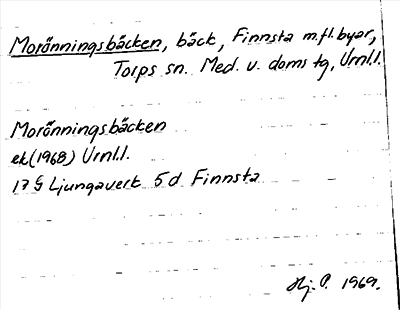 Morönningsbäcken, bäck, Finnsta m.fl. byar,
Torps sn. Med. v. doms tg, Vrnl.l.
Morönningsbäcken
ek (1968) Vrnl.l.
17 G Ljungaverk 5 d Finnsta
Hj. P. 1969.